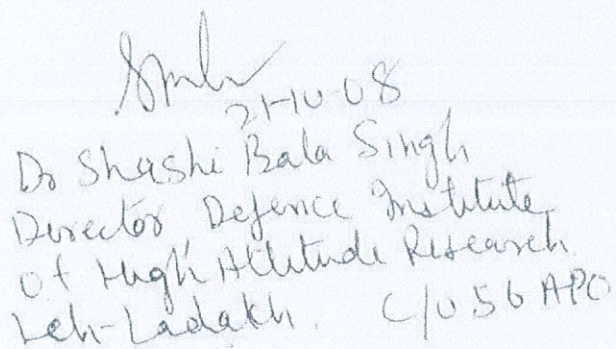 21-10-08
Dr Shashi Bala Singh
Director Defence Institute
of High Altitude Research
Leh-Ladakh. C/O 56 APO